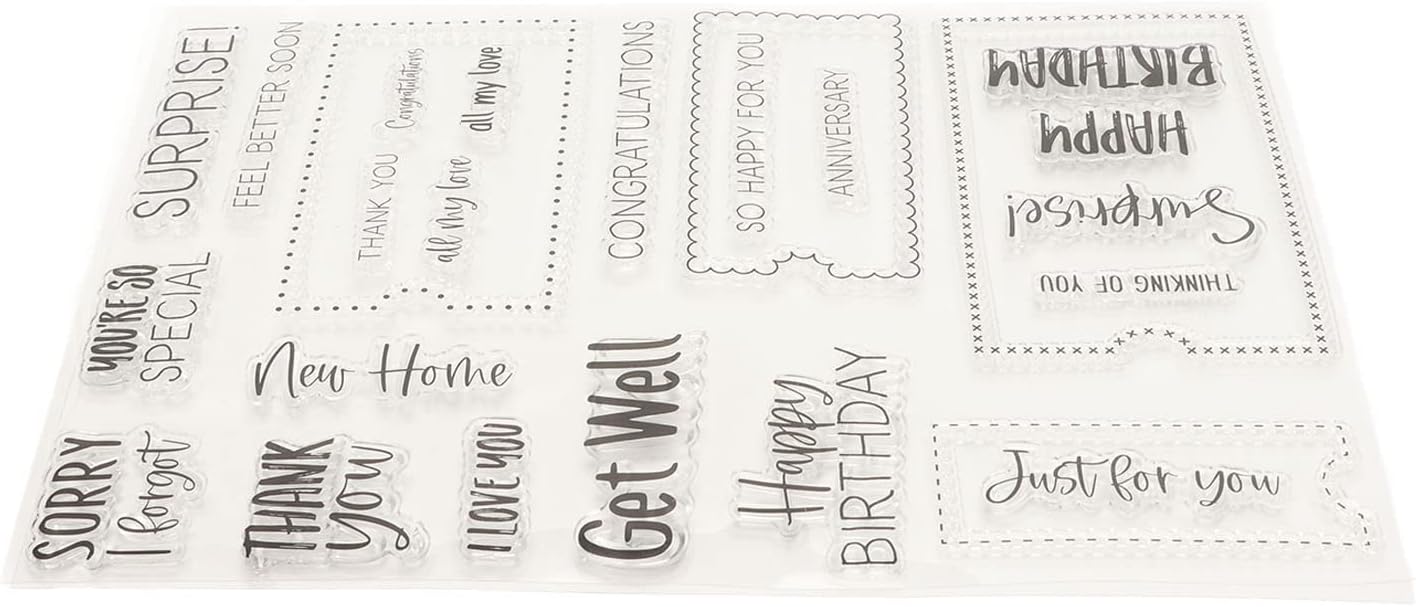 SURPRISE!
FEEL BETTER SOON
THANK YOU
Congratulations
all my love
all my love
CONGRATULATIONS
SO HAPPY FOR YOU
ANNIVERSARY
BIRTHDAY
HAPPY
Surprise!
THINKING OF YOU
YOU'RE SO
SPECIAL
New Home
SORRY
I forgot
THANK
you
I LOVE YOU
Get Well
Happy
BIRTHDAY
Just for you